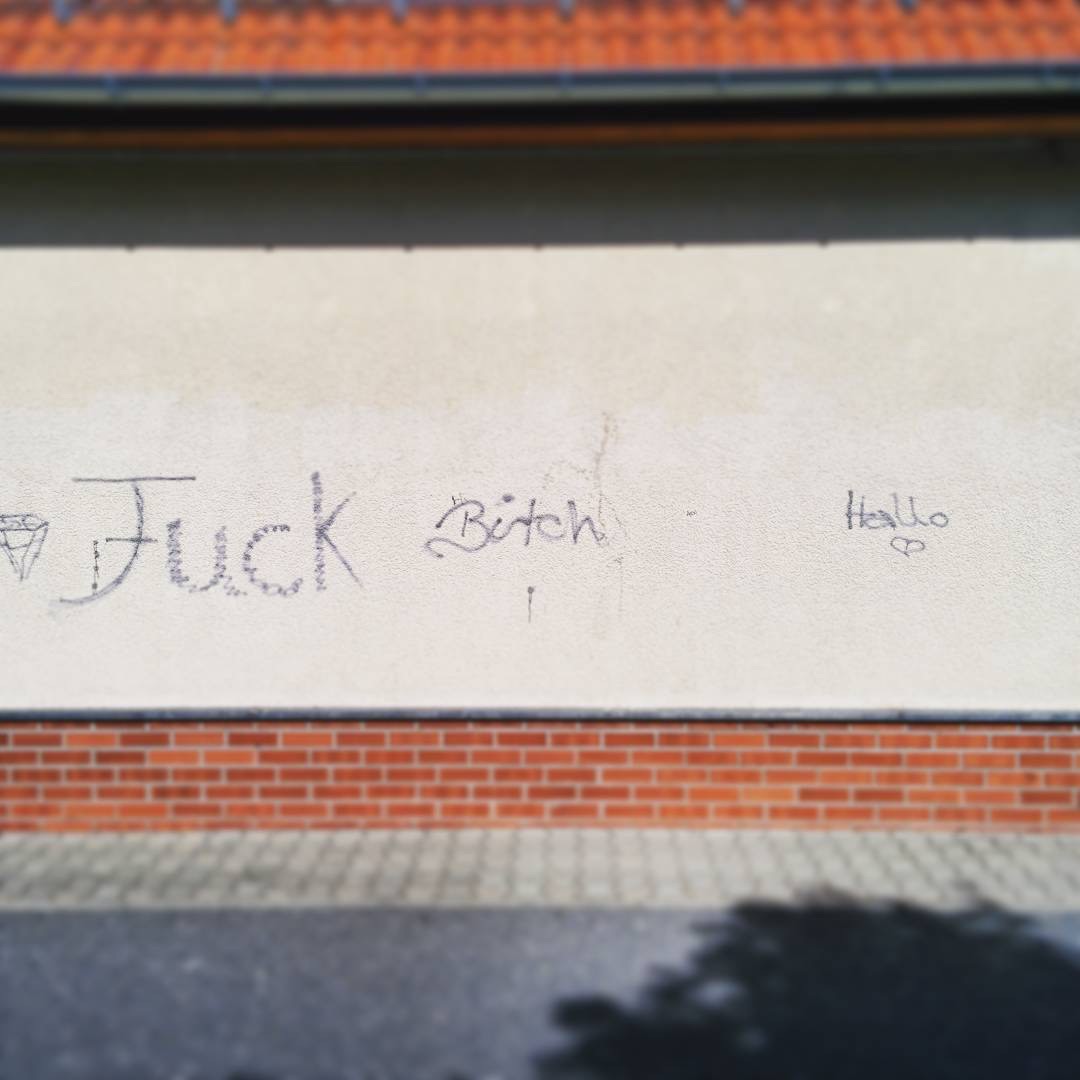 Fuck Bitch Hallo